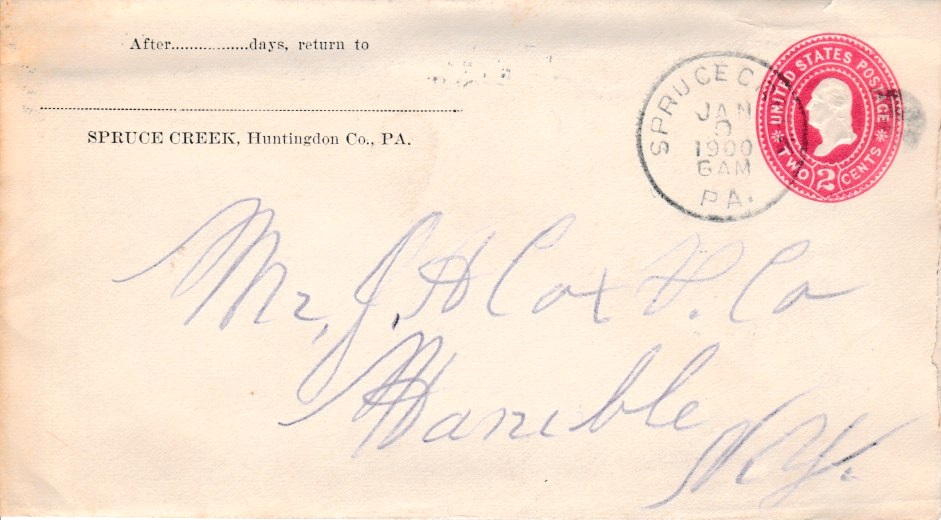 After.................days, return to
SPRUCE CREEK, Huntingdon Co., PA.
SPRUCE C
JAN
1900
6 AM
PA.
UNITED STATES POSTAGE
TWO 2 CENTS
Mr, J. H Cox &. Co
Hanible
N.Y.